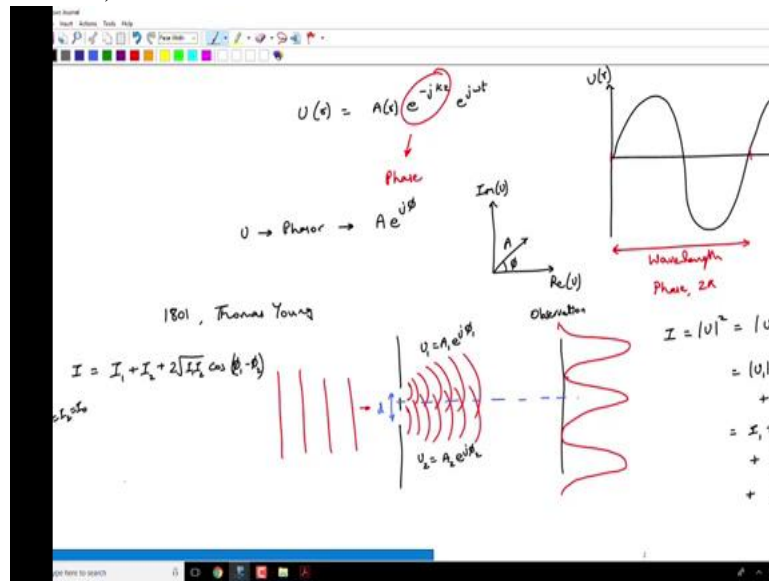 Insert Actions Tools Help
U(r) = A(r) e^{-jkz} e^{jωt}
Phase
U → Phasor → Ae^{jφ}
Im(U)
A
φ
Re(U)
U(r)
Wavelength
Phase, 2π
1801, Thomas Young
I = I₁ + I₂ + 2√I₁I₂ cos (φ₁-φ₂)
=I₂=I₀
d
U₁ = A₁e^{jφ₁}
U₂ = A₂e^{jφ₂}
Observation
I = |U|² = |U
= |U₁|
+
= I₁ +
+
+
type here to search